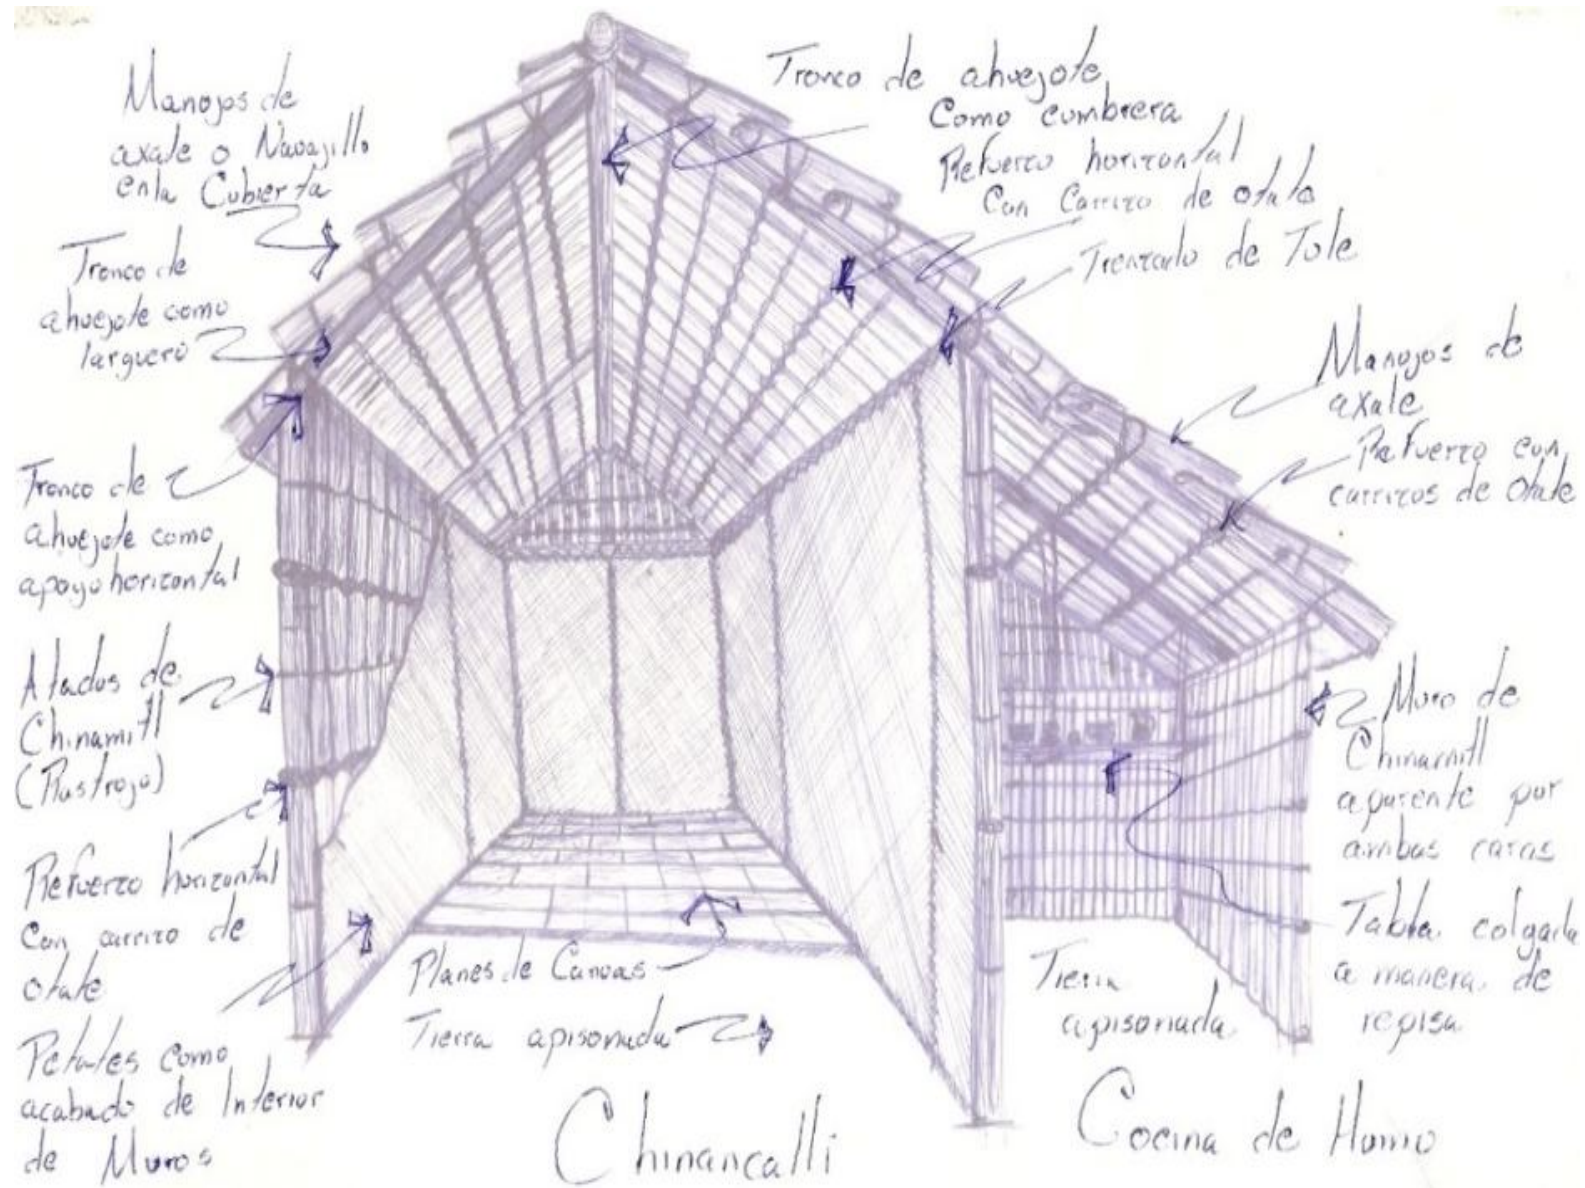 Manojos de
axale o Navajillo
en la Cubierta
Tronco de
ahuejote como
larguero
Tronco de
ahuejote como
apoyo horizontal
Atados de
Chinamitl
(Rastrojo)
Refuerzo horizontal
Con carrizo de
otate
Petates como
acabado de Interior
de Muros
Tronco de ahuejote
Como cumbrera
Refuerzo horizontal
Con Carrizo de otate
Trenzado de Tule
Manojos de
axale
Refuerzo con
carrizos de Otate
Muro de
Chinamitl
aparente por
ambas caras
Tabla colgada
a manera de
repisa
Planes de Canoas
Tierra apisonada
Tierra
apisonada
Chinancalli
Cocina de Humo